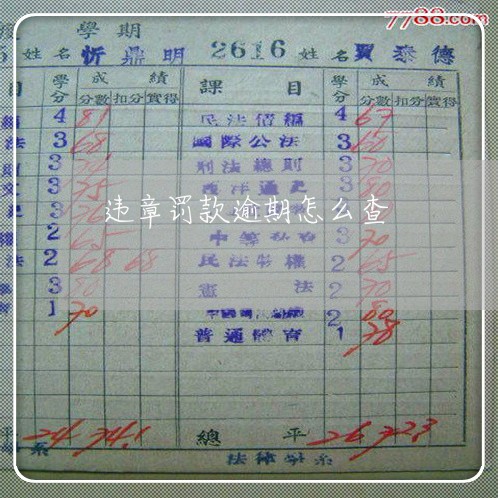 7788.com
學期
姓名 忻鼎明 2616 姓名 賈泰德
目 學分 成績 課目 學分 成績
分數 扣分 實得 分數 扣分 實得
4 81 民法債編 4 67
法 3 68 國際公法 3 60
3 刑法總則 3 70
3 75 西洋通史 3 80
違章罰款逾期怎么查
2 65 3 70
法 2 68 68 民法物權 2 65
3 80 憲法 2 70
1 70 2 80
普通體育 1 78
平 24 74.1 總平 26 72.3
系 法律學系